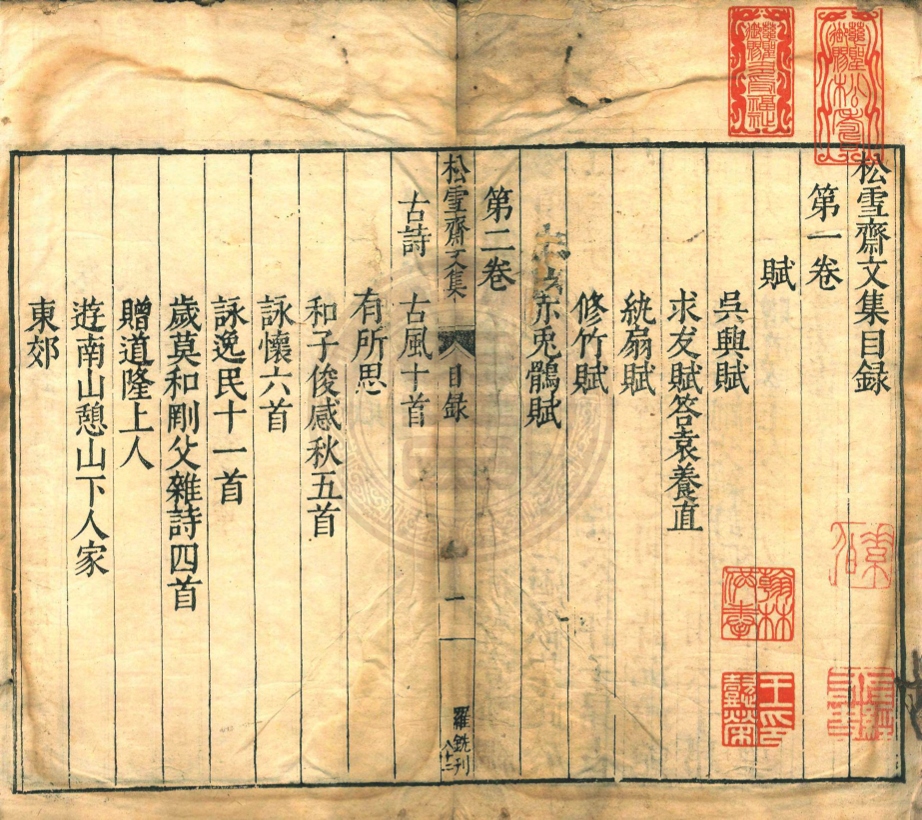 松雪齋文集目録
第一卷
賦
吳興賦
求友賦答袁養直
紈扇賦
修竹賦
赤兎鶻賦
第二卷
松雪齋文集
目録
一
羅銑刊
古詩
古風十首
有所思
和子俊感秋五首
詠懷六首
詠逸民十一首
歲莫和剛父雜詩四首
贈道隆上人
遊南山憩山下人家
東郊
翰林